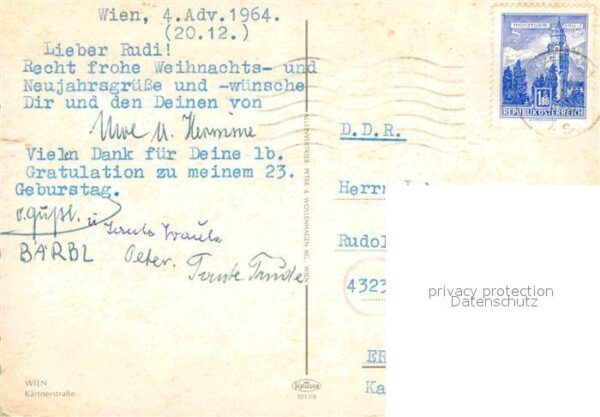 Wien, 4.Adv.1964.
(20.12.)
Lieber Rudi!
Recht frohe Weihnachts- und
Neujahrsgrüße und -wünsche
Dir und den Deinen von
Uwe u. Hermine
Vieln Dank für Deine lb.
Gratulation zu meinem 23.
Geburstag.
u. Tante Traute
BÄRBL Peter. Tante Trude
WIEN
Kärtnerstraße
ALLEINVERTRIEB PETER & WOLLENHAGEN KG. WIEN
KRÜGER
1.50
REPUBLIK ÖSTERREICH
D.D.R.
Herrn
Rudol
4323
ER
Ka
privacy protection
Datenschutz